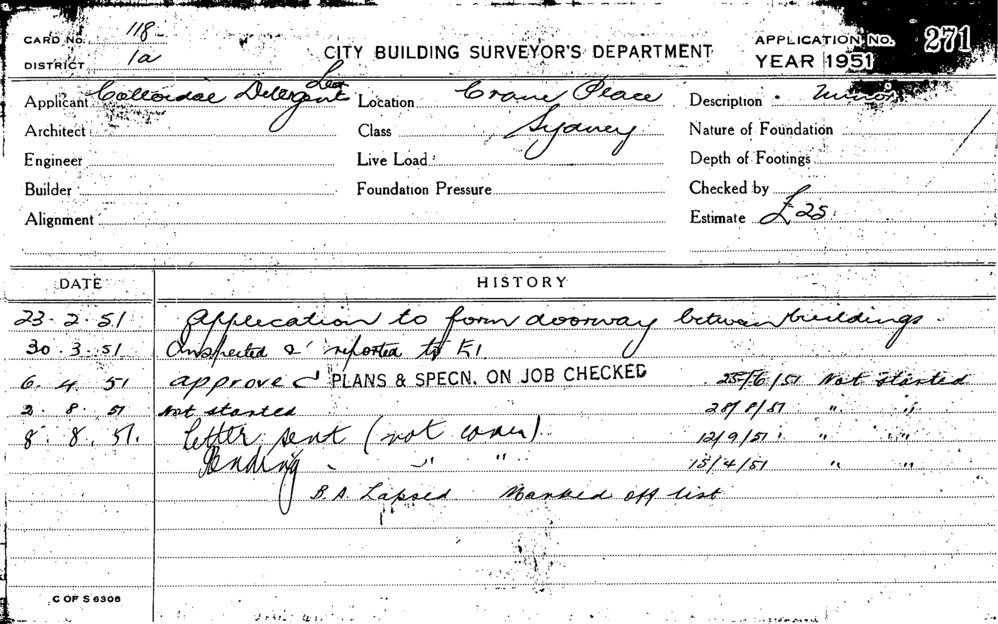 CARD No. 118
DISTRICT 1a
CITY BUILDING SURVEYOR'S DEPARTMENT
APPLICATION No. 271
YEAR 1951
Applicant Colloidal Detergent Location Crane Place Description Minor
Architect Class Sydney Nature of Foundation
Engineer Live Load Depth of Footings
Builder Foundation Pressure Checked by
Alignment Estimate £25
DATE HISTORY
23.2.51 Application to form doorway between buildings.
30.3.51 Inspected & reported to E1
6.4.51 approved PLANS & SPECN. ON JOB CHECKED 25/6/51 Not started
2.8.51 Not started 28/8/51 " "
8.8.51. Letter sent (not comm) 12/9/51 " "
Pending " " 15/4/51 " "
B.A. Lapsed Marked off list
C OF S 6306